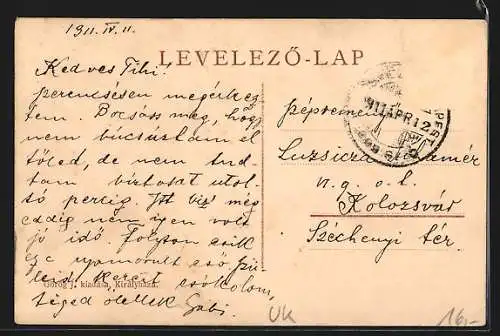 1911. IV. 11.
LEVELEZŐ-LAP
Kedves Tihi!
szerencsésen megérkez
tem. Bocsáss meg, hogy
nem búcsúztam el
tőled, de nem tud-
tam biztosat utol-
só percig. Itt még
eddig nem igen volt
jó idő. Folyton esik
egy nyomorult eső
Kezeit csókolom,
téged ölellek Gabi
Görög J. kiadása, Királyháza.
911 APR 12
PEST
Luzsicza
n. g. o. l.
Kolozsvár
Széchenyi tér.
UK
16,-